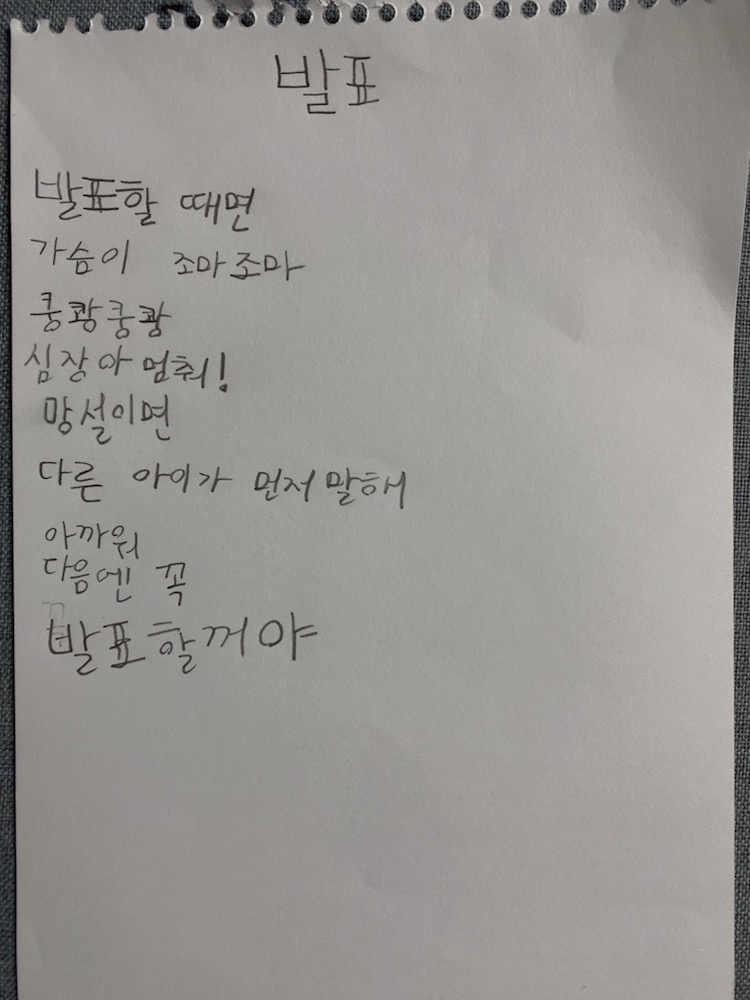 발표
발표할 때면
가슴이 조마조마
쿵쾅쿵쾅
심장아 멈춰!
망설이면
다른 아이가 먼저 말해
아까워
다음엔 꼭
발표할꺼야